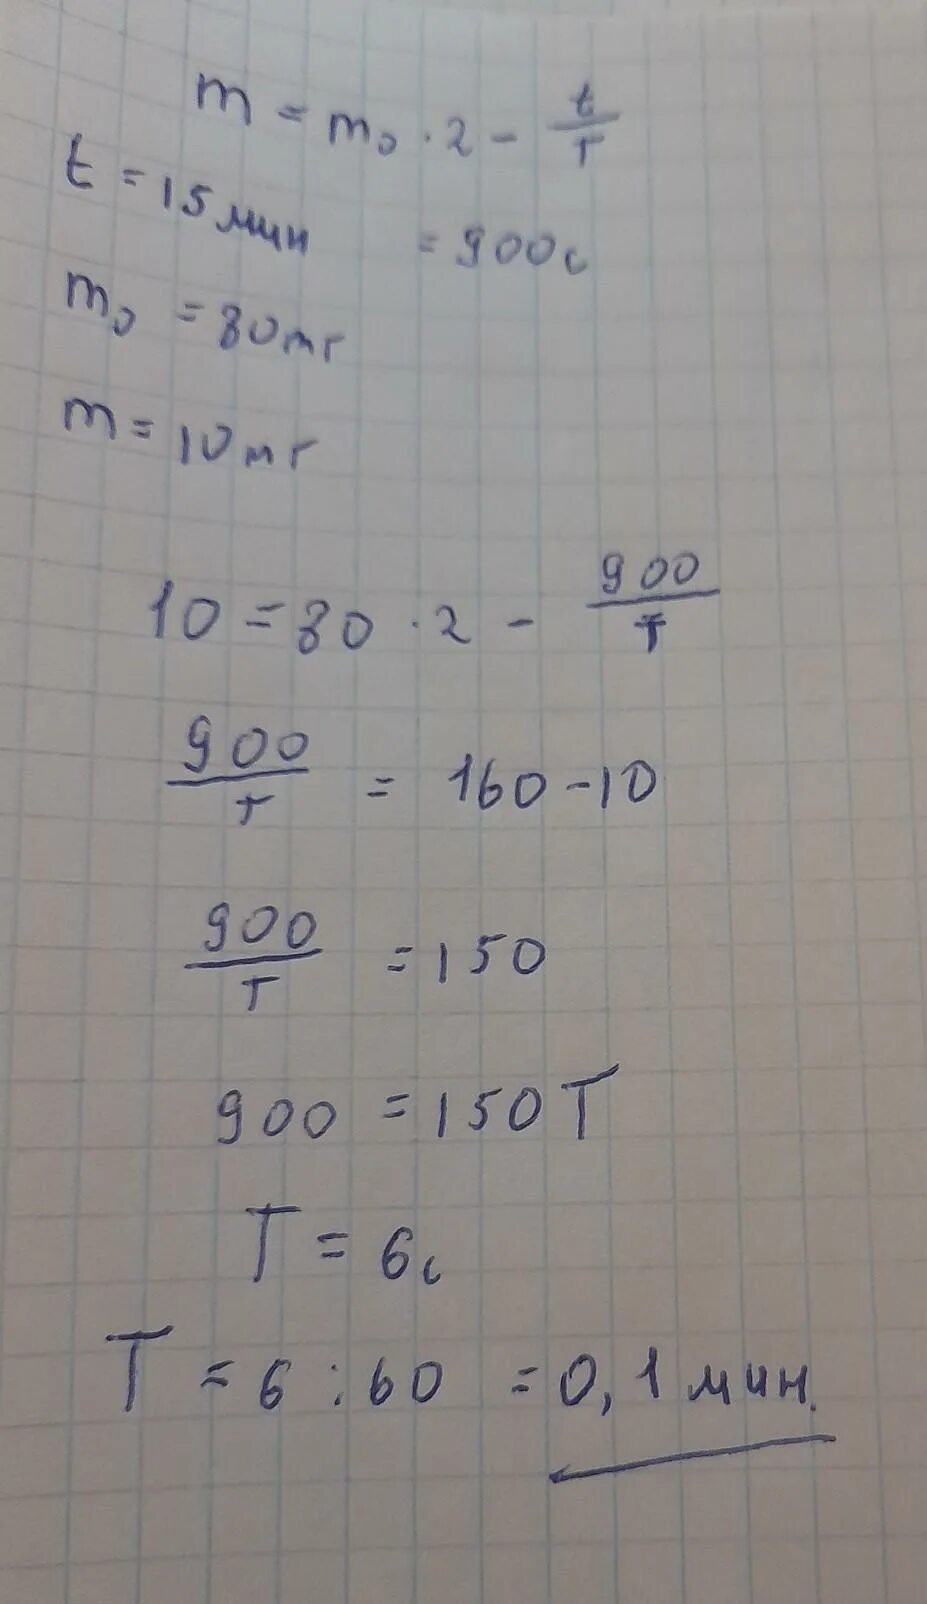 m = m₀ · 2 - t/T
t = 15 мин = 900с
m₀ = 80 мг
m = 10 мг
10 = 80 · 2 - 900/T
900/T = 160 - 10
900/T = 150
900 = 150 T
T = 6с
T = 6 : 60 = 0,1 мин.